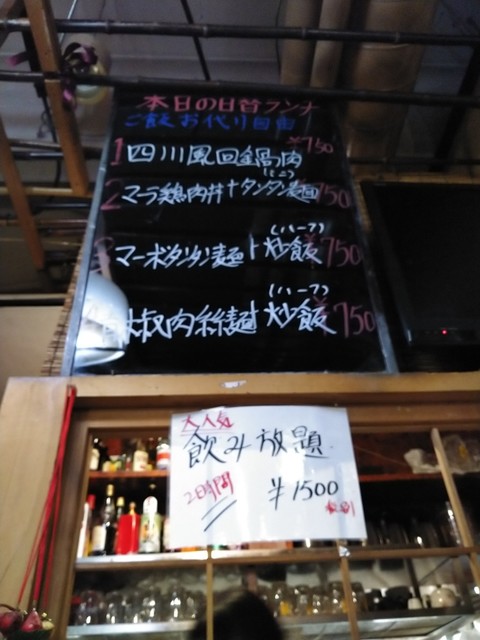 本日の日替ランチ
ご飯お代り自由
1 四川風回鍋肉 ¥750
(ミニ)
2 マーラ鶏肉丼+タンタン麺 ¥750
(ハーフ)
3 マーボタンタン麺+炒飯 ¥750
(ハーフ)
椒肉絲麺+炒飯 ¥750
大人気
飲み放題
2時間 ¥1500
税別